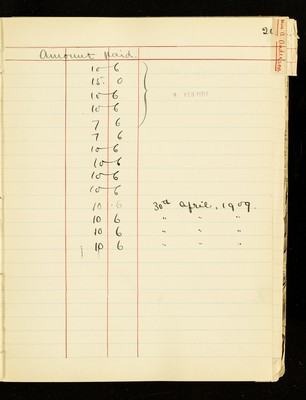 Amount Paid.
10 6
15. 0
10 6
10 6
7 6
7 6
10 6
10 6
10 6
10 6
10 . 6 30th April, 1909.
10 6 " " "
10 6 " " "
10 6 " " "